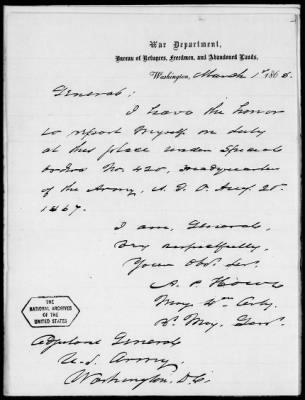 War Department,
Bureau of Refugees, Freedmen, and Abandoned Lands,
Washington, March 1st 1868.
General:
I have the honor
to report myself on duty
at this place under Special
Orders No. 420, Headquarters
of the Army, A. G. O. Aug 20.
1867.
I am, General,
Very respectfully,
Your Obt. Ser.
A. P. Howe
Maj. 4th Arty.
Bt. Maj. Genl.
THE
NATIONAL ARCHIVES
OF THE
UNITED STATES
Adjutant General
U. S. Army
Washington D.C.